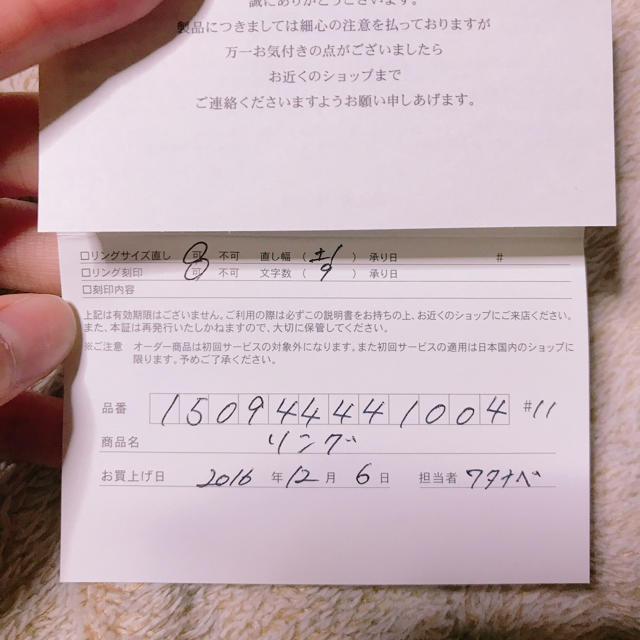 誠にありがとうございます。
製品につきましては細心の注意を払っておりますが
万一お気付きの点がございましたら
お近くのショップまで
ご連絡くださいますようお願い申しあげます。
□リングサイズ直し 可 不可 直し幅 ( ±1 ) 承り日 #
□リング刻印 可 不可 文字数 ( 9 ) 承り日
□刻印内容
上記は有効期限はございません。ご利用の際は必ずこの説明書をお持ちの上、お近くのショップにご来店ください。
また、本証は再発行いたしかねますので、大切に保管してください。
※ご注意 オーダー商品は初回サービスの対象外になります。また初回サービスの適用は日本国内のショップに
限ります。予めご了承ください。
品番 150944441004 #11
商品名 リング
お買上げ日 2016 年 12 月 6 日 担当者 ワタナベ